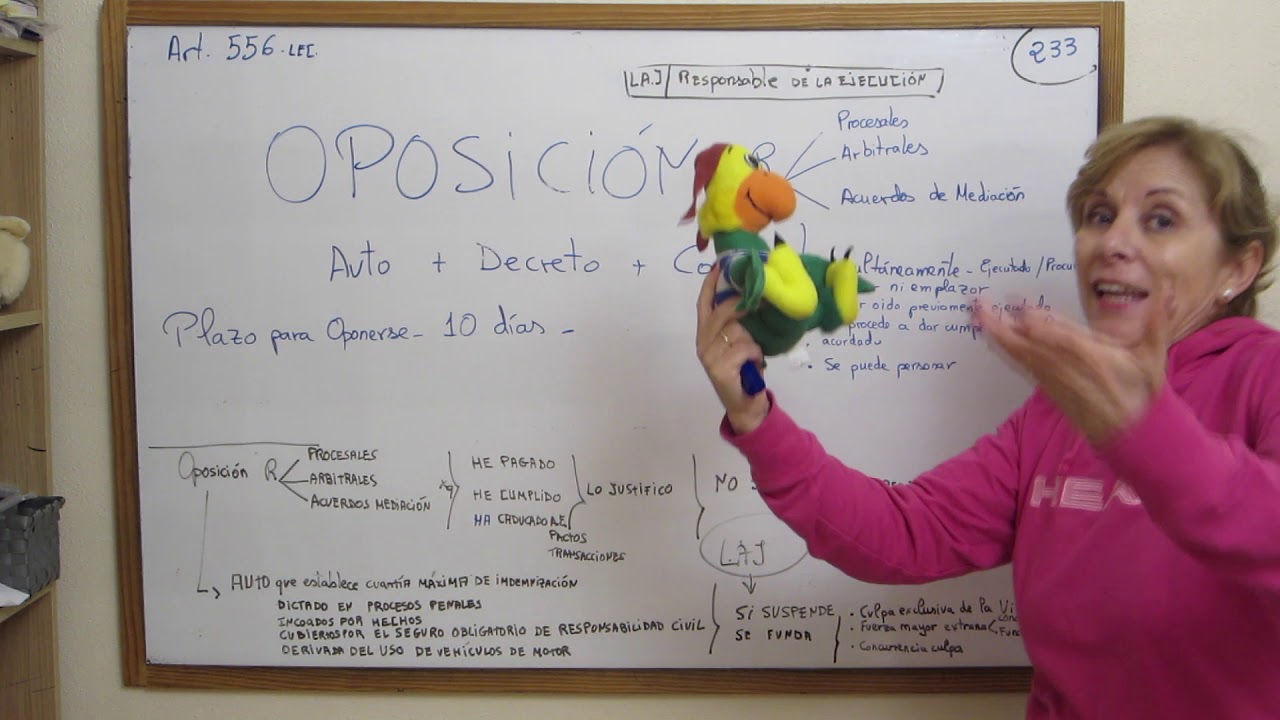 Art. 556. LEC.
233
L.A.J Responsable DE LA EJECUCIÓN
OPOSICIÓN R
Procesales
Arbitrales
Acuerdos de Mediación
Auto + Decreto + Co
ultáneamente - Ejecutado / Procu
ni emplazar
oido previamente ejecutado
procedo a dar cump
acordado
Se puede personar
Plazo para Oponerse - 10 días -
Oposición R
PROCESALES
ARBITRALES
ACUERDOS MEDIACIÓN
xq
HE PAGADO
HE CUMPLIDO
HA CADUCADO A.E
PACTOS
TRANSACCIONES
LO JUSTIFICO
NO
LAJ
AUTO que establece cuantía MÁXIMA DE INDEMNIZACIÓN
DICTADO EN PROCESOS PENALES
INCOADOS POR HECHOS
CUBIERTOS POR EL SEGURO OBLIGATORIO DE RESPONSABILIDAD CIVIL
DERIVADA DEL USO DE VEHÍCULOS DE MOTOR
SI SUSPENDE
SE FUNDA
. Culpa exclusiva de la Vi
. Fuerza mayor extraña
. Concurrencia culpa
HEA